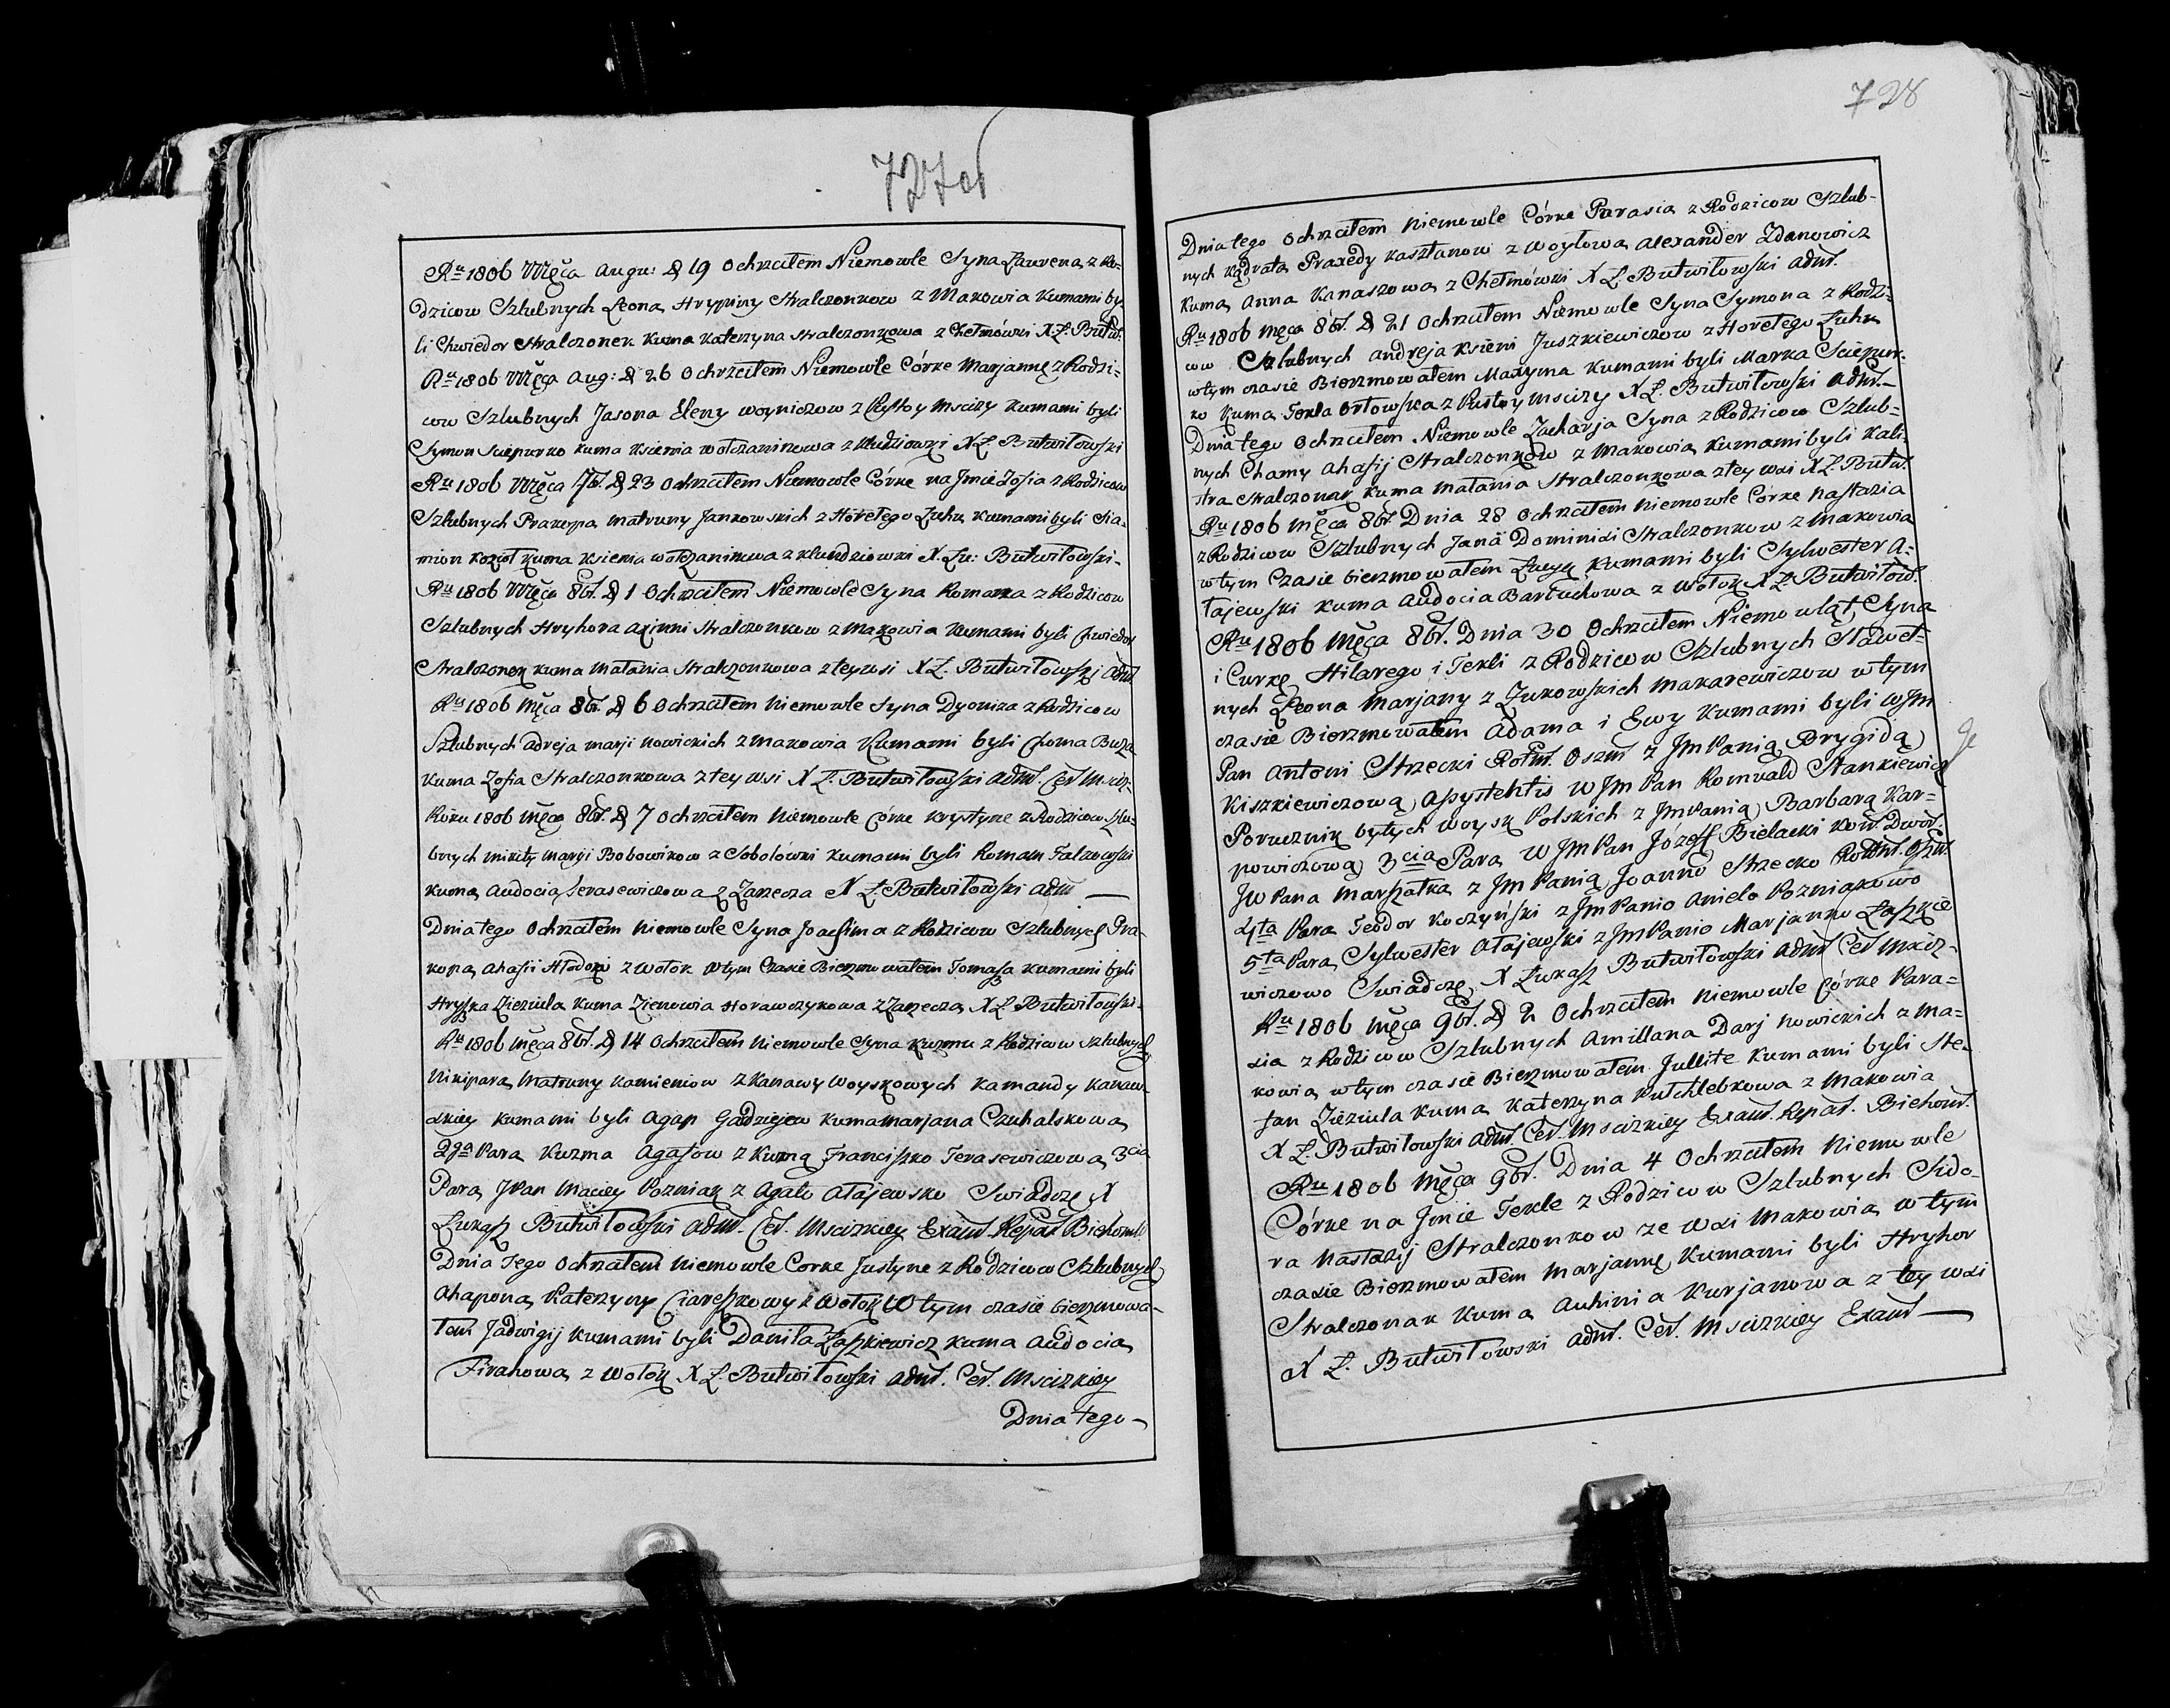 727 об
Ru 1806 Męca Augu: D 19 Ochrzciłem Niemowle Syna Laurena z Ro-
dzicow Szlubnych Leona Hrypiny Stralczonkow z Makowia Kumami by-
li Chwiedor Stralczonek Kuma Katerzyna Stralczonkowa z Chełmówki X Ł. Butwi:
Ru 1806 Męca Aug: D 26 Ochrzciłem Niemowle Córke Marjannę z Rodzi-
cow Szlubnych Jasona Eleny Woyniczow z Pustoy Mscizy Kumami byli
Symon Sciepurko Kuma Ksienia Wołczaninowa z Kludziowki X Ł. Butwiłowski
Ru 1806 Męca 7br. D 23 Ochrzciłem Niemowle Córke na Jmie Zofia z Rodzicow
Szlubnych Prakopa Matruny Jankowskich z Horełego Łuhu Kumami byli Sia-
mion Kozioł Kuma Ksienia Wołczaninowa z Kludziowki X Łu: Butwiłowski-
Ru 1806 Męca 8br. D 1 Ochrzciłem Niemowle Syna Romana z Rodzicow
Szlubnych Hryhora Axinni Stralczonkow z Makowia Kumami byli Chwiedor
Stralczonek Kuma Matania Stralczonkowa z tey wsi X Ł. Butwiłowski Adm.
Ru 1806 Męca 8br. D 6 Ochrzciłem Niemowle Syna Dyoniza z Rodzicow
Szlubnych Adreja Marji Nowickich z Makowia Kumami byli Choma Buza
Kuma Zofia Stralczonkowa z tey wsi X Ł. Butwiłowski Adm. Cer. Msciz-
Roku 1806 Męca 8br. D 7 Ochrzciłem Niemowle Córke Krystyne z Rodzicow Szlu-
bnych Mikity Marji Bobowikow z Sobolówki Kumami byli Roman Falkowski
Kuma Audocia Terasewiczowa z Zarzecza X Ł Butwiłowski Adm —
Dnia tego Ochrzciłem Niemowle Syna Joachima z Rodzicow Szlubnych Pra-
kopa Ahafii Hłodow z Wołok w tym Czasie Bierzmowałem Tomasza Kumami byli
Hryszka Zieziula Kuma Zienowia Horawczykowa z Zarzecza X Ł Butwiłowski-
Ru 1806 Męca 8br. D 14 Ochrzciłem Niemowle Syna Kuzmu z Rodzicow Szlubnych
Nikipara Matruny Kamieniow z Kanawy Woyskowych Kamandy Kanaw-
skiey Kumami byli Agap Gadziejew Kuma Marjana Czuhalskowa
2ga Para Kuzma Agafow z Kumą Franciszko Terasewiczowa 3cia
Para JPan Maciey Pozniak z Agato Ałajewsko Swiadczę X
Łukasz Butwiłowski Adm. Cer. Mscizkiey Exam. Repar Biehoml
Dnia Tego Ochrzciłem Niemowle Corke Justyne z Rodzicow Szlubnych
Ahapona Katerzyny Ciareszkowy z Wołok W tym czasie bierzmowa-
łem Jadwigij Kumami byli Daniła Łaszkiewicz Kuma Audocia
Firahowa z Wołok X Ł. Butwiłowski Adm. Cer. Mscizkiey
Dnia tego-
728
Dnia tego Ochrzciłem Niemowle Córke Parasia z Rodzicow Szlub-
nych Kądrata Praxedy Kasztanow z Woytowa Alexander Zdanowicz
Kuma Anna Kanaszowa z Chełmówki X Ł Butwiłowski Adm.
Ru 1806 Męca 8br. D 21 Ochrzciłem Niemowle Syna Symona z Rodzi-
cow Szlubnych Andreja Ksieni Juszkiewiczow z Horełego Łuhu
w tym czasie Bierzmowałem Maxyma Kumami byli Marka Sciepur-
ko Kuma Tekla Orłowska z Pustoy Mscizy X Ł. Butwiłowski Adm.-
Dnia tego Ochrzciłem Niemowle Zacharja Syna z Rodzicow Szlub-
nych Chamy Ahafij Stralczonkow z Makowia Kumami byli Kali-
stra Stralczonak Kuma Matania Stralczonkowa z tey wsi X Ł Butw.
Ru 1806 Męca 8br. Dnia 28 Ochrzciłem Niemowle Córke Nastazia
z Rodzicow Szlubnych Jana Dominisi Stralczonkow z Makowia
w tym Czasie bierzmowałem Łucyę Kumami byli Sylwester A-
łajewski Kuma Audocia Bartuchowa z Wołok X Ł Butwiłow.
Ru 1806 Męca 8br. Dnia 30 Ochrzciłem Niemowląt Syna
i Curkę Hilarego i Tekli z Rodzicow Szlubnych Sławet-
nych Leona Marjany z Zukowskich Makarewiczow w tym
czasie Bierzmowałem Adama i Ewy Kumami byli WJm
Pan Antoni Strzecki Rotm. Oszm z JmPanią Brygidą
Kiszkiewiczową Apystentis WJm Pan Romuald Stankiewicz
Porucznik byłych woysk Polskich z JmPanią Barbarą Kar-
powiczową 3cia Para WJm Pan Józeff Bielacki Kom. Dwor.
JwPana Marszałka z JmPanią Joanno Strzecko Rotm. Oszm.
4ta Para Teodor Koczyński z JmPanio Anielo Pozniakowo
5ta Para Sylwester Ałajewski z JmPanio Marjanno Łaszkie
wiczowo Swiadczę X Łukasz Butwiłowski Adm Cer Msciz-
Ru 1806 Męca 9br. D 2 Ochrzciłem Niemowle Córke Para-
sia z Rodzicow Szlubnych Amillana Darj Nowickich z Ma-
kowia w tym czasie Bierzmowałem Jullite Kumami byli Ste-
fan Zieziula Kuma Katerzyna Putchlebkowa z Makowia
X Ł. Butwiłowski Adm. Cer. Mscizkiey Exam. Repar. Biehoml.
Ru 1806 Męca 9br. Dnia 4 Ochrzciłem Niemowle
Córke na Jmie Tekle z Rodzicow Szlubnych Sido-
ra Nastazij Stralczonkow ze wsi Makowia w tym
czasie Bierzmowałem Marjannę Kumami byli Hryhor
Stralczonak Kuma Auhinia Kurjanowa z tey wsi
X Ł. Butwiłowski Adm. Cer. Mscizkiey Exam —